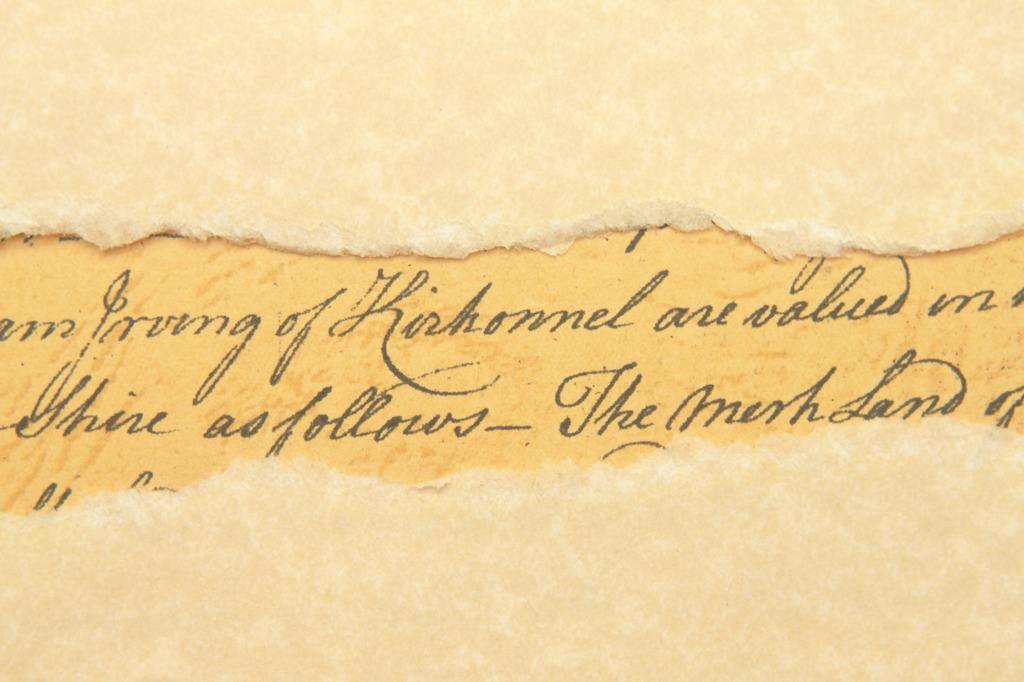 am Irving of Kirkonnel are valued in
Shire as follows— The Merk Land of